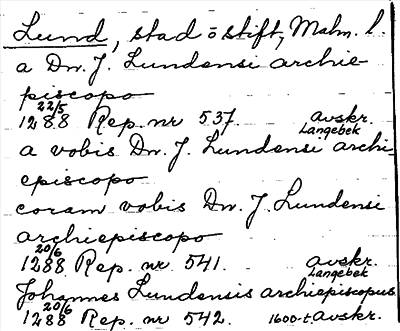 Lund, stad o stift, Malm. l.
a Dn. J. Lundensi archie-
piscopo
22/5 1288 Rep. nr 537. avskr. Langebek
a vobis Dn. J. Lundensi archi-
episcopo
coram vobis Dn. J. Lundensi
archiepiscopo
20/6 1288 Rep. nr 541. avskr. Langebek
Johannes Lundensis archiepiscopus
20/6 1288 Rep. nr 542. 1600-t. avskr.